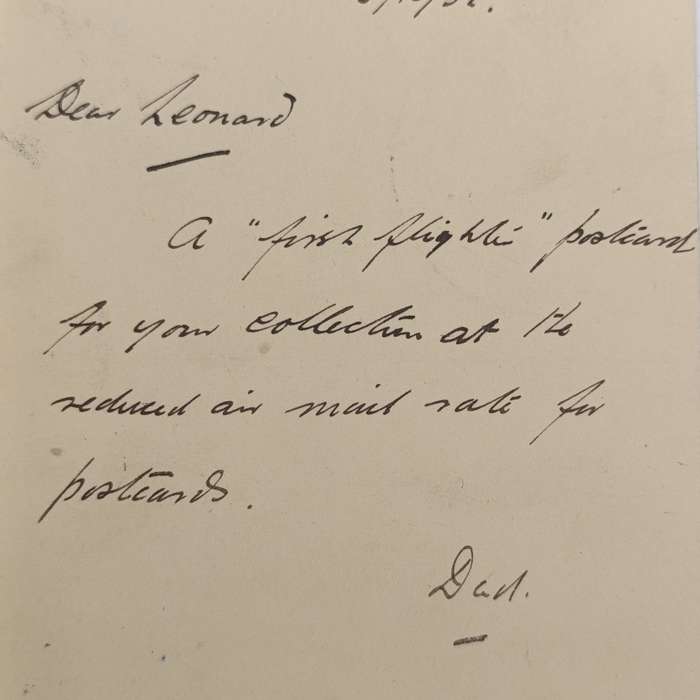 Dear Leonard
A "first flight" postcard
for your collection at the
reduced air mail rate for
postcards.
Dad.